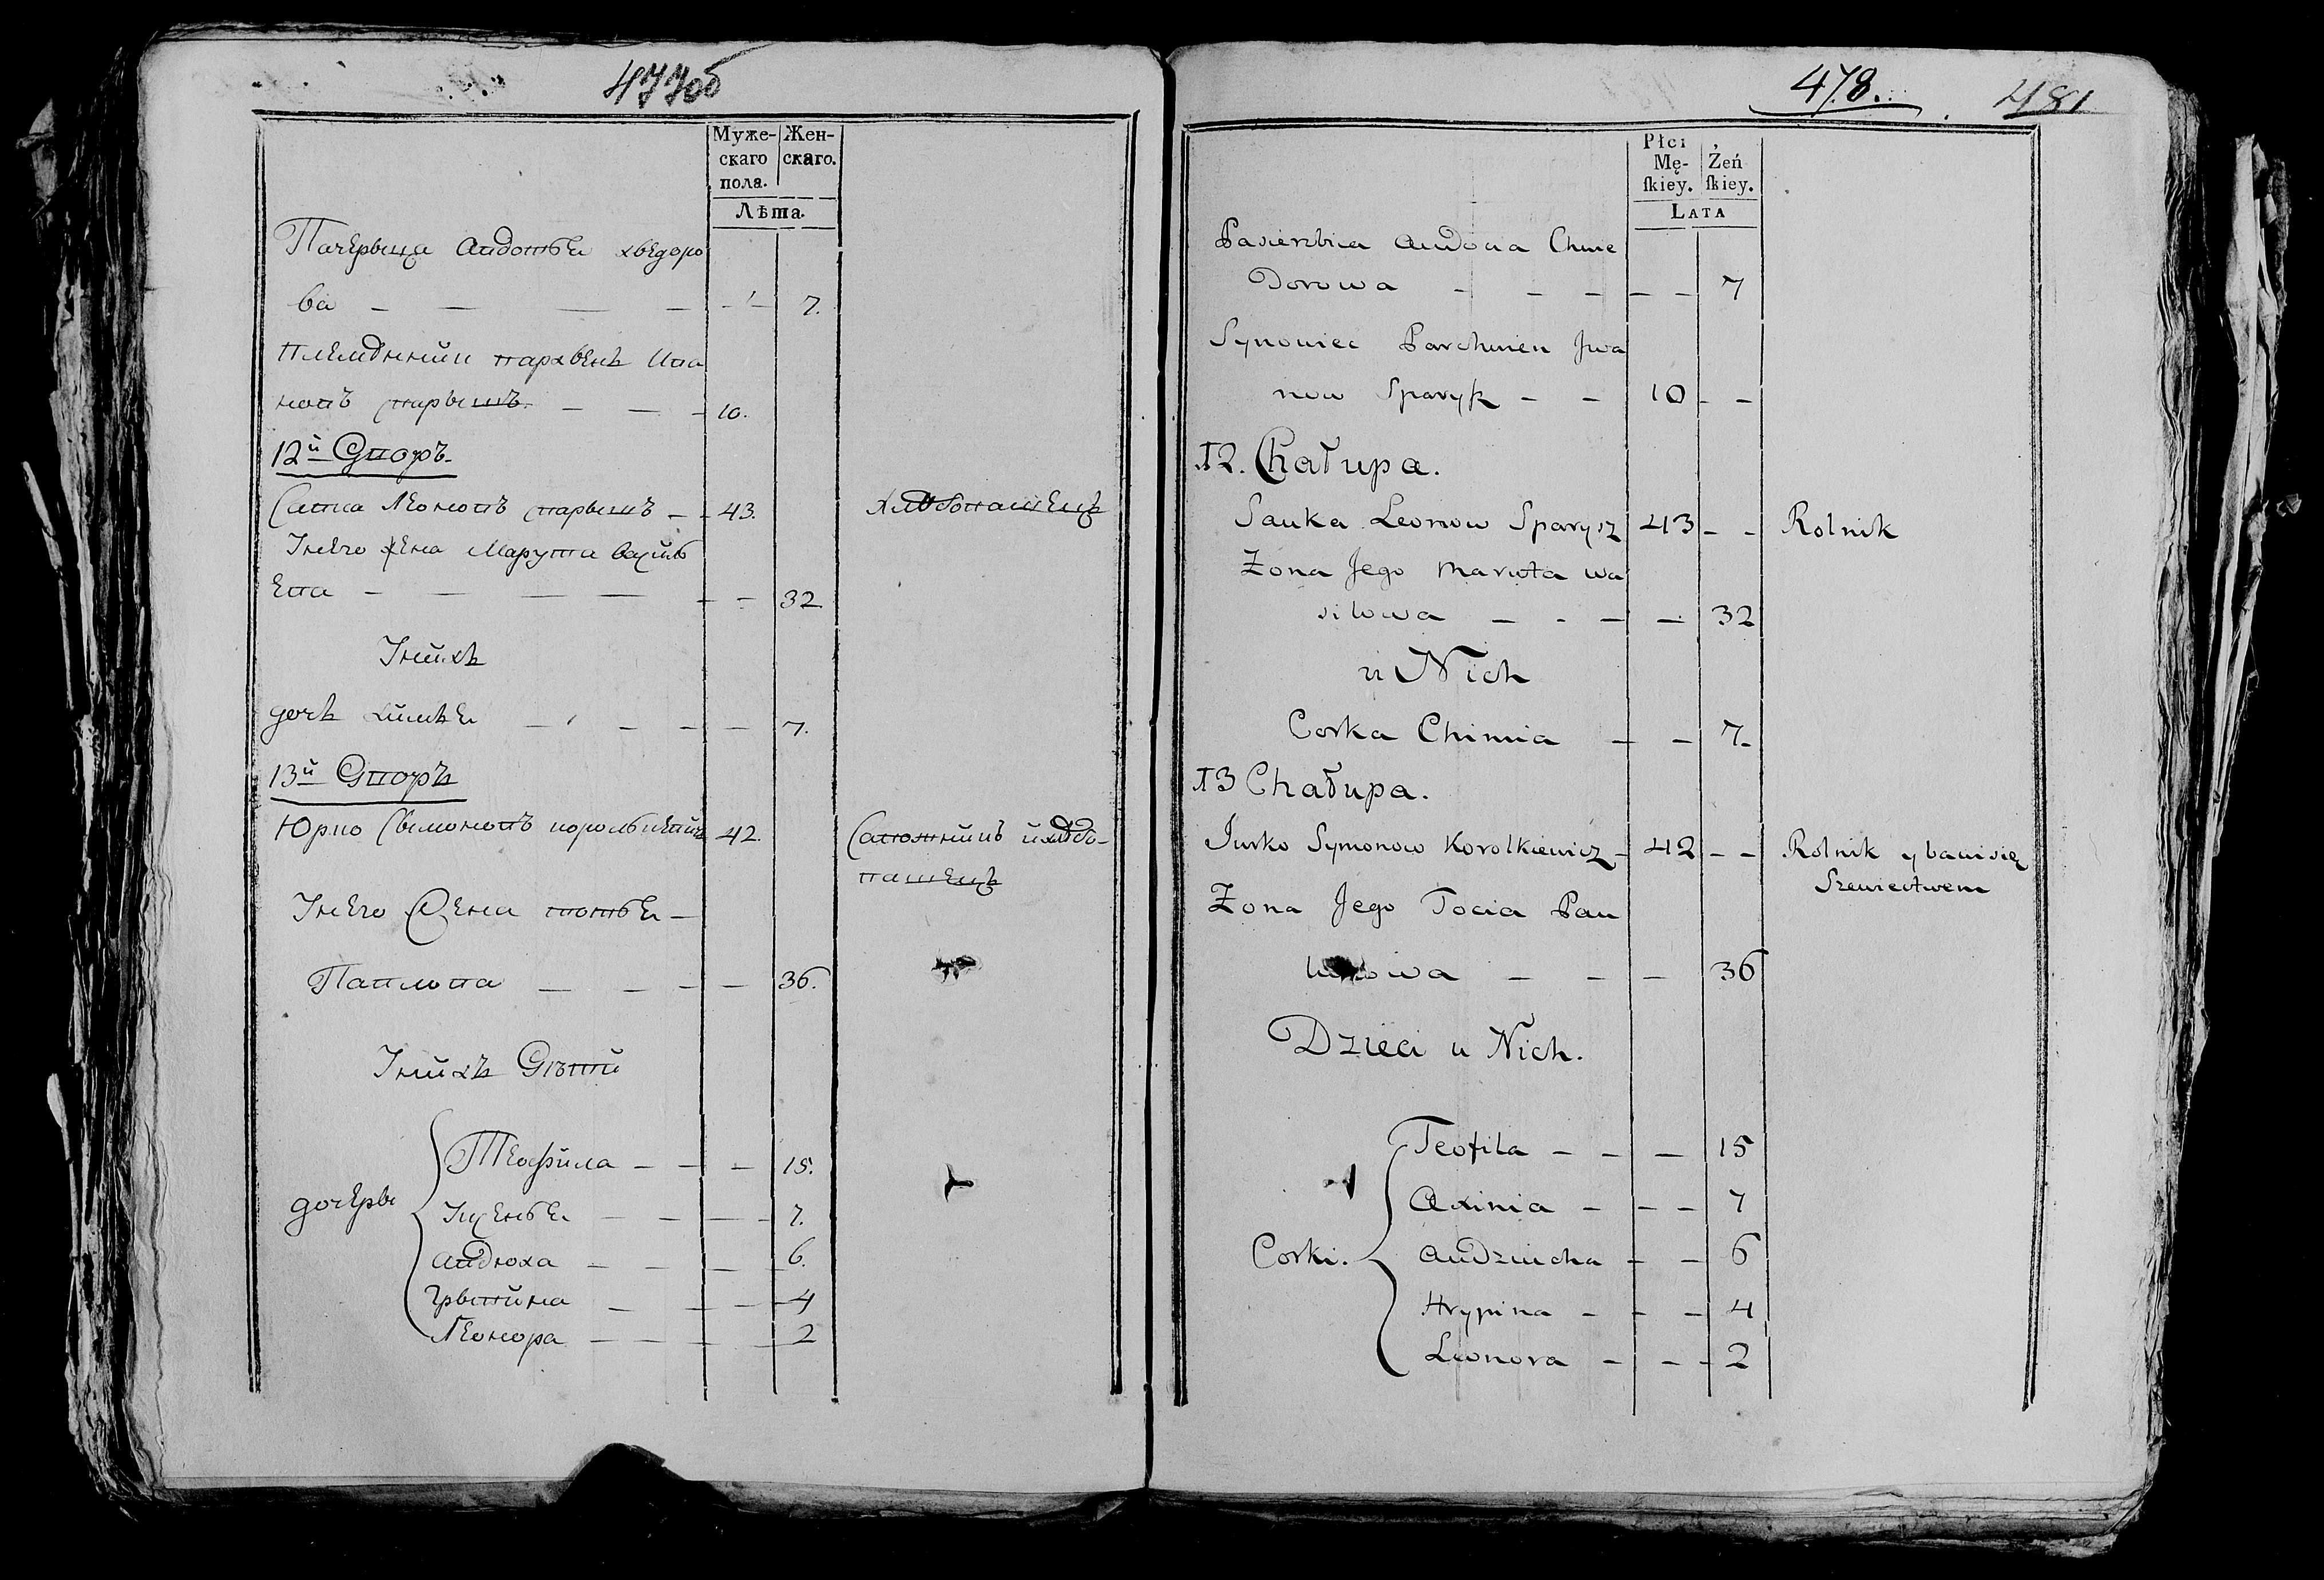 477об
Муже-
скаго
пола.
Жен-
скаго.
Лѣта.
Пачерыца Авдотьи Хведоро
ва — — — — — 7.
Племенник Пархвенъ Ива
новъ — — 10.
12й Дворъ
Савка Леоновъ — 43. хлѣбопашецъ
У него жена Марута Васил
ева — — — — — 32.
У них
дочь Химъя — — — — 7.
13й Дворъ
Юрко Сымоновъ Королькевичъ 42. Сапожник и хлѣбо-
пашецъ
У него жена —
Павлова — — — — 36.
У них Дѣти
дочеры
Теофила — — — 15.
— — — 7.
Авдюха — — — 6.
Грыпина — — — 4
Леонора — — — 2
478.
481
Płci
Mę-
ſkiey.
Żeń
ſkiey.
LATA
Pasierbica Audocia Chwe
dorowa — — — — — 7
Synowiec Parchwien Jwa
now Sparysz — — 10 — —
12. Chałupa.
Sauka Leonow Sparysz 43 — — Rolnik
Zona Jego Maruta wa
silowa — — — — 32
u Nich
Corka Chimia — — 7
13 Chałupa.
Jurko Symonow Korolkiewicz — 42 — — Rolnik y bawi się
Szewiectwem
Zona Jego Tocia Pau
— — — 36
Dzieci u Nich.
Corki.
Teofila — — — 15
Axinia — — — 7
Audziucha — — 6
Hrypina — — — 4
Leonora — — — 2